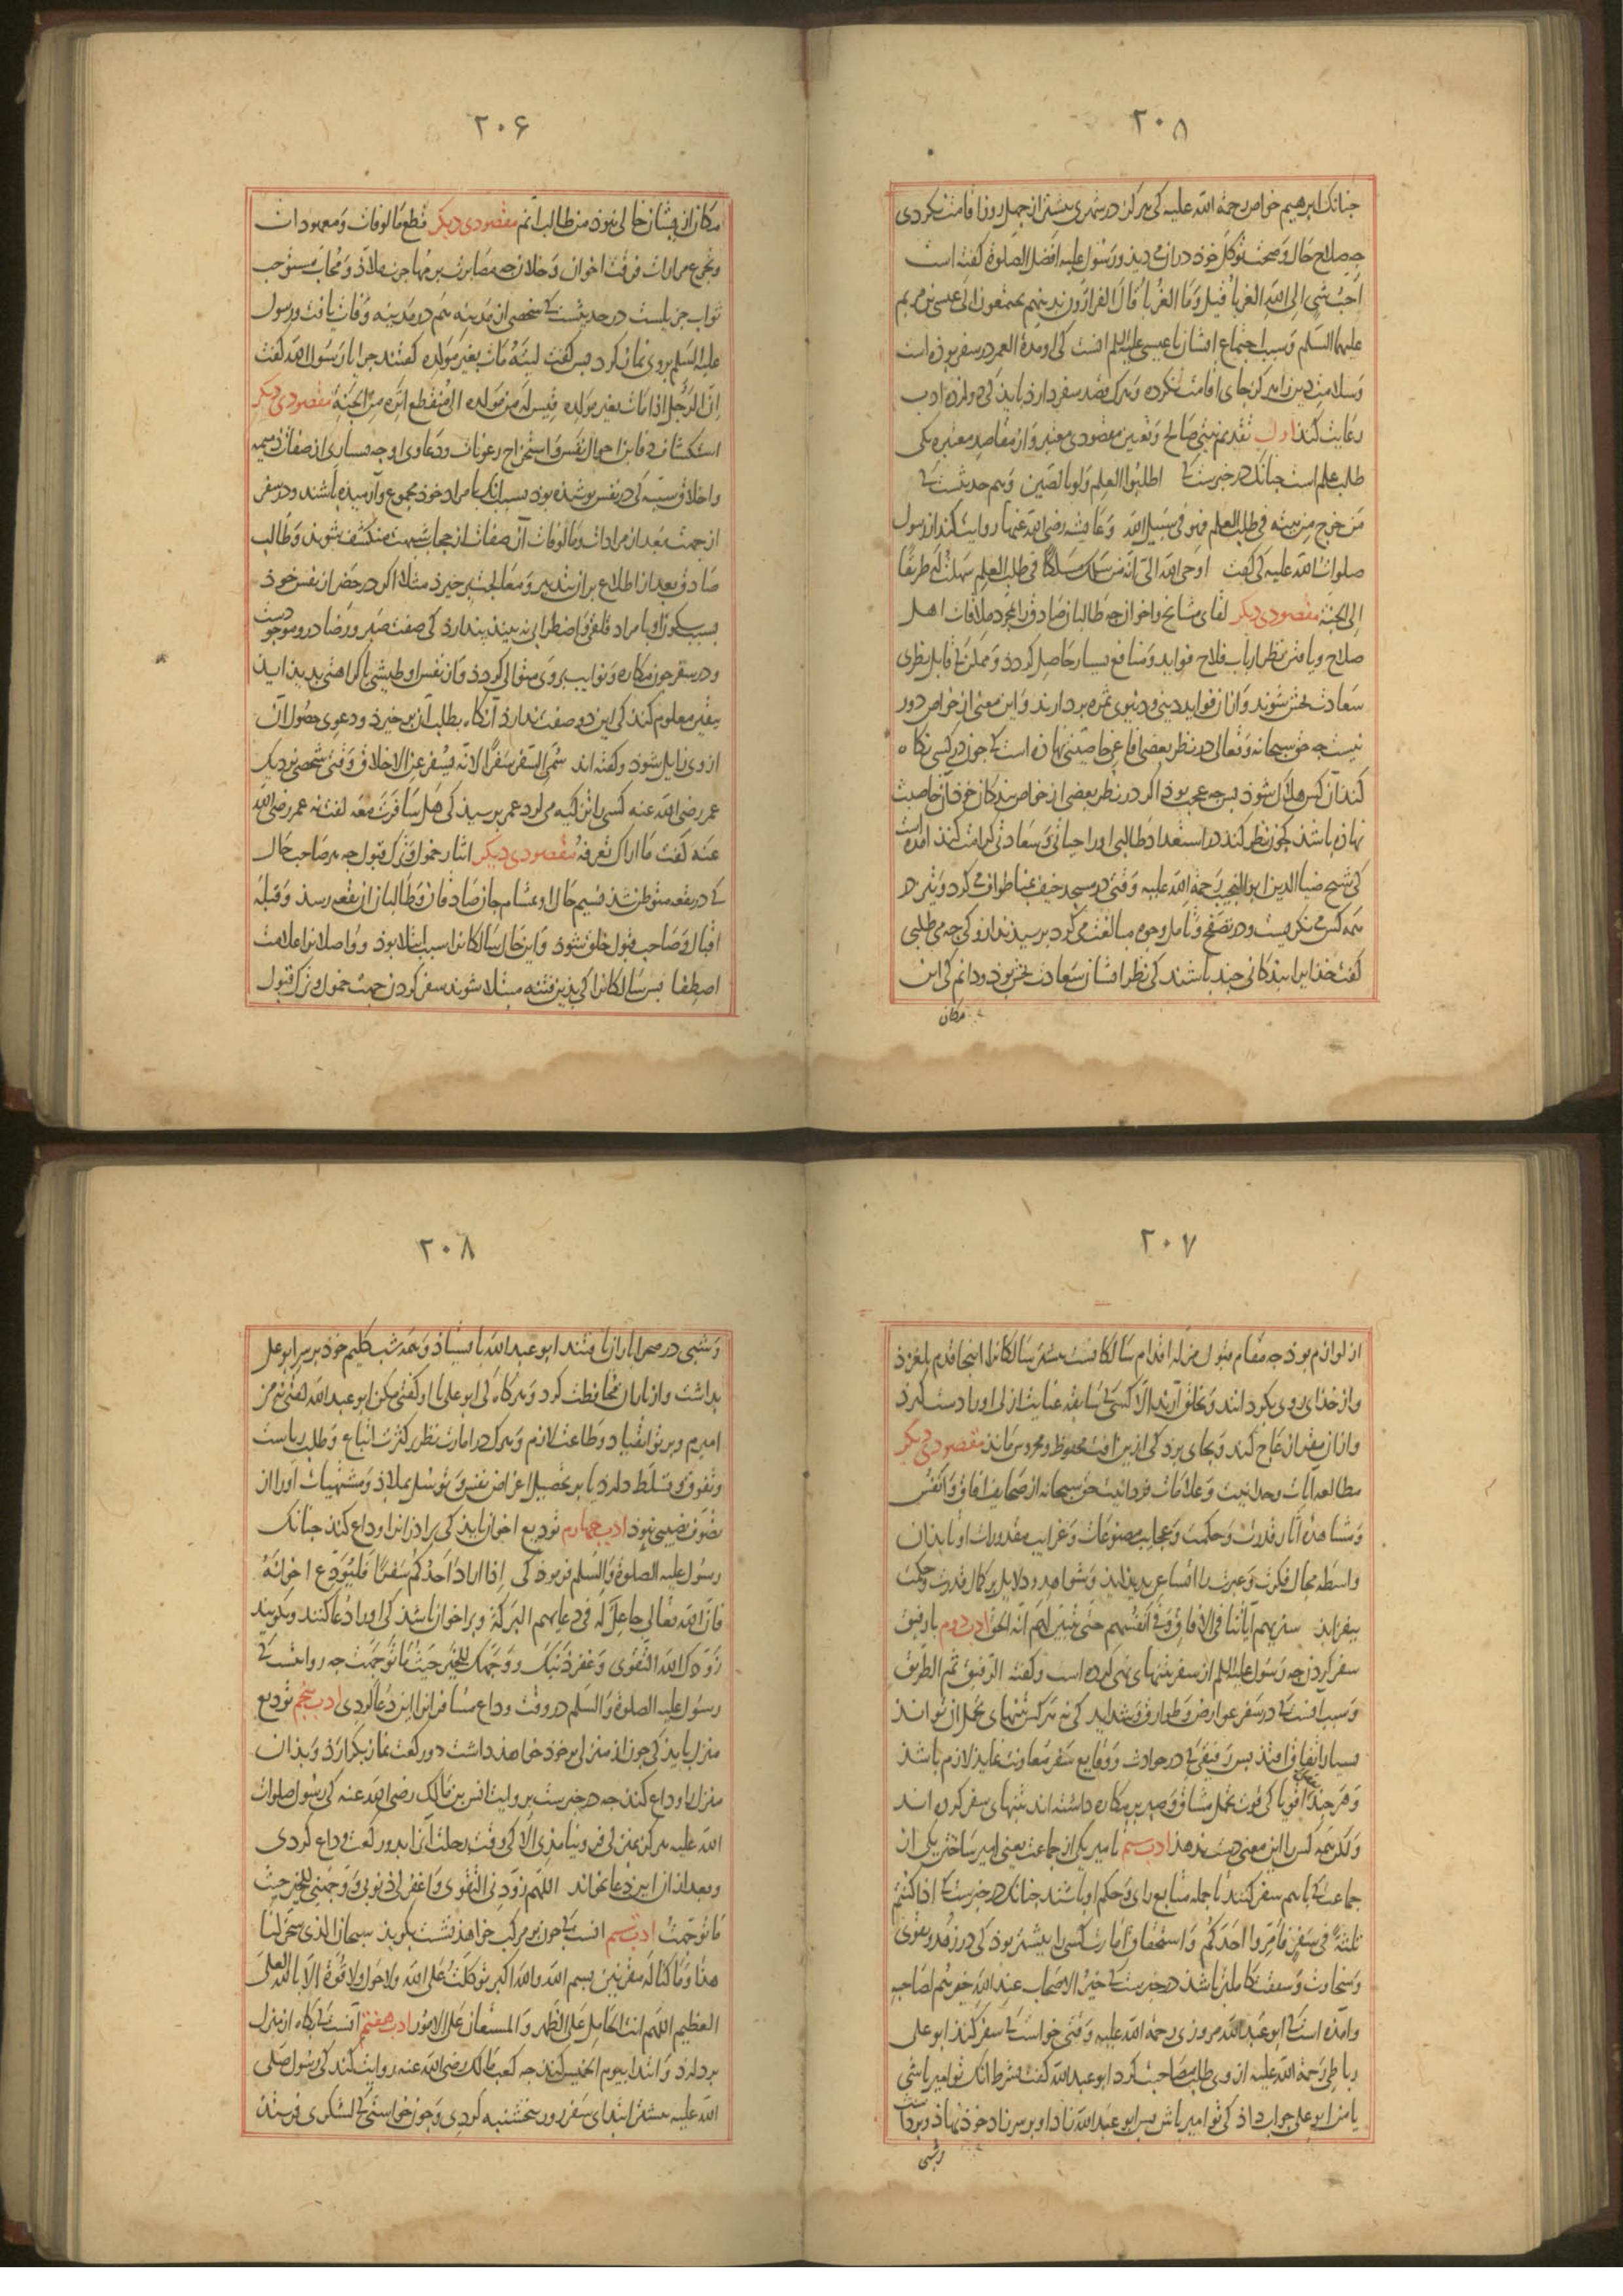 ۲۰۸
جنانک ابرهیم خواص رحمة الله علیه کی هرکز در شهری بیشتر از جهل روز اقامت نکردی
جه صلاح حال و صحت توکل خوذ در ان می دیذ و رسول علیه افضل الصلوة کفته است
احب شی الی الله الغربا قیل و ما الغربا قال الفرارون بدینهم یجتمعون الی عیسی بن مریم
علیهما السلم و سبب اجتماع ایشان با عیسی علیه السلم انست کی او مدة العمر در سفر بوده است
و سلامت دین را هرکز بجای اقامت نکرده و هرک قصد سفر دارد بایذ کی دوازده ادب
رعایت کنذ اول تقدیم نیتی صالح و تعیین مقصودی معتبر و از مقاصد معتبره یکی
طلب علم است جنانک در خبرست کی اطلبوا العلم و لو بالصین و هم حدیثست کی
من خرج من بیته فی طلب العلم فهو فی سبیل الله و عایشه رضی الله عنها روایت کند از رسول
صلوات الله علیه کی کفت اوحی الله الی انه من سلک مسلکا فی طلب العلم سهلت له طریقا
الی الجنة مقصودی دیکر لقای مشایخ و اخوان جه طالبان صادق را بمجرد ملاقات اهل
صلاح و یافتن نظر ارباب فلاح فواید و منافع بسیار حاصل کردد و ممکن کی قابل نظری
سعادت بخش شوند و از ان فواید دینی و دنیوی ثمره بردارند و این معنی از خواص دور
نیست جه حق سبحانه و تعالی در نظر بعضی افاعی خاصیتی نهاده است کی جون در کسی نکاه
کنذ آن کس هلاک شوذ بس جه عجب بوذ اکر در نظر بعضی از خواص بندکان خوذ آن خاصیت
نهاده باشذ کجون نظر کنند در استعداد طالبی او را حیاتی و سعادتی کرامت کنذ امده است
کی شیخ ضیا الدین ابو النجیب رحمة الله علیه وقتی در مسجد خیف بمنا طواف می کرد و نیز در
همه کس می نکریست و در تصفح و تامل وجوه مبالغت می کرد برسیذند از و کی جه می طلبی
کفت خدایرا بندکانی جند باشند کی نظر ایشان سعادت بخش بوذ و دانم کی این
مکان
۲۰۶
مکان از یشان خالی نبوذ من طالب آنم مقصودی دیکر قطع مالوفات و معهودات
و تجرع مرارات فرقت اخوان و خلان جه مصابرت بر مهاجرت ملاذ و محاب مستوجب
ثواب جزیلست در حدیثست کی شخصی از مدینه هم در مدینه وفات یافت و رسول
علیه السلم بر وی نماز کرد بس کفت لیته مات بغیر مولده کفتند جرا یا رسول الله کفت
ان الرجل اذا مات بغیر مولده قیس له من مولده الی منقطع اثره من الجنة مقصودی دیکر
استکشاف دفاین احوال نفس و استخراج رعونات و دعاوی او جه بسیاری از صفات ذمیمه
و اخلاق سیه کی در نفس بوشیذه بوذ بسبب انک با مراد خوذ مجموع و آرمیذه باشند و در سفر
از جهت بعد از مرادات و مالوفات آن صفات از حجاب شبهت منکشف شوند و طالب
صادق بعد از اطلاع بر ان بتدبیر و معالجت بر خیزد مثلا اکر در حضر از نفس خوذ
بسبب سکون او با مراد قلقی و اضطرابی نه بیند بندارد کی صفت صبر و رضا در و موجودست
و در سفر جون مکاره و نوایب بر وی متوالی کردد و از نفس او طیشی یا کراهتی بدیذ آیذ
یقین معلوم کند کی این دو صفت ندارذ آنکاه بطلب آن بر خیزذ و دعوی حصول آن
از وی زایل شوذ و کفته اند سمی السفر سفرا لانه یسفر عن الاخلاق وقتی شخصی نزدیک
عمر رضی الله عنه کسی را تزکیه می کرد عمر برسیذ کی هل سافرت معه کفت نه عمر رضی الله
عنه کفت ما اراک تعرفه مقصودی دیکر ایثار خمول و ترک قبول جه هر صاحب حال
کی در بقعه متوطن شذ نسیم حال او بمشام جان صادقان و طالبان ان بقعه رسد و قبله
اقبال و صاحب قبول خلق شوذ و این حال سالکانرا سبب ابتلا بوذ و واصلانرا علامت
اصطفا بس سالکانرا کی بذین فتنه مبتلا شوند سفر کردن جهت خمول و ترک قبول
۲۰۷
از لوازم بوذ جه مقام قبول مزله اقدام سالکانست بیشتر سالکانرا اینجا قدم بلغزد
و از خذای روی بکردانند و بخلق آرند الا کسی کی سابقه عنایت ازلی او را دست کیرد
و از ان مقر ازعاج کند و بجای برد کی از بین آفت محفوظ و محروس ماند مقصودی دیکر
مطالعه آیات وحدانیت و علامات فردانیت حق سبحانه از صحایف افاق و انفس
و مشاهده آثار قدرت و حکمت و عجایب مصنوعات و غرایب مقدورات او تا بذان
واسطه مجال فکرت و عبرت را اتساعی بدیذ ایذ و شواهد و دلایل بر کمال قدرت و حکمت
بیفزاید سنریهم آیاتنا فی الافاق و فی انفسهم حتی یتبین لهم انه الحق ادب دوم با رفیق
سفر کردن جه رسول علیه السلم از سفر بتنهای نهی کرده است و کفته الرفیق ثم الطریق
و سبب انست کی در سفر عوارض و طوارق و شداید کی نه هر کس بتنهای تحمل ان تواند
بسیار اتفاق افتذ بس رفیقی کی در حوادث و وقایع سفر معاونت نماید لازم باشد
و هر جند بعضی اقویا کی قوت تحمل مشاق و صبر بر مکاره داشته اند بتنهای سفر کرده اند
و لکن همه کس را این معنی دست ندهذ ادب سیم تامیر یکی از جماعت یعنی امیر ساختن یکی از
جماعت کی با هم سفر کنند تا جمله متابع رای و حکم او باشند جنانک در خبرست کی اذا کنتم
ثلثة فی سفر فامروا احدکم و استحقاق امارت کسی را بیشتر بوذ کی در زهد و تقوی
و سخاوت و شفقت کاملتر باشد در خبرست کی خیر الاصحاب عند الله خیرهم لصاحبه
و آمده است کی ابو عبد الله مروزی رحمة الله علیه وقتی خواست کی سفر کند ابو علی
رباطی رحمة الله علیه از وی طلب مصاحبت کرد ابو عبد الله کفت بشرط انک تو امیر باشی
یا من ابو علی جواب داد کی تو امیر باش بس ابو عبد الله زاد او بر سر زاد خوذ نهاد و برداشت
و شبی
۲۰۸
و شبی در صحرا باران یافتند ابو عبد الله بایستاد و همه شب کلیم خوذ بر سر ابو علی
بداشت و از باران محافظت کرد و هر کاه کی ابو علی با او کفتی مکن ابو عبد الله کفتی نه من
امیرم و بر تو انقیاد و طاعت لازم و هرک در امارت نظر بر کثرت اتباع و طلب ریاست
و تفوق و تسلط دارد یا بر تحصیل اغراض نفس و توسل بملاذ و مشتهیات او را از
تصوف نصیبی نبوذ ادب جهارم تودیع اخوان بایذ کی برادرانرا وداع کند جنانک
رسول علیه الصلوة و السلم فرموذ کی اذا اراد احدکم سفرا فلیودع اخوانه
فان الله تعالی جاعل له فی دعایهم البرکة و بر اخوان باشذ کی او را دعا کنند و بکویند
زودک الله التقوی و غفر ذنبک و وجهک للخیر حیث ما توجهت جه روایتست کی
رسول علیه الصلوة و السلم در وقت وداع مسافرانرا این دعا کردی ادب بنجم تودیع
منزل بایذ کی جون از منزلی بر خوذ خواهذ داشت دو رکعت نماز بکزارد و بذان
منزل را وداع کند جه در خبرست بروایت انس بن مالک رضی الله عنه کی رسول صلوات
الله علیه هرکز بمنزلی فرو نیامذی الا کی وقت رحلت آنرا بدو رکعت وداع کردی
و بعد از ان این دعا بخواند اللهم زودنی التقوی و اغفر لی ذنوبی و وجهنی للخیر حیث
ما توجهت ادب ششم انست کی جون بر مرکب خواهذ نشست بکویذ سبحان الذی سخر لنا
هذا و ما کنا له مقرنین بسم الله و الله اکبر توکلت علی الله و لا حول و لا قوة الا بالله العلی
العظیم اللهم انت الحامل علی الظهر و المستعان علی الامور ادب هفتم آنست کی بکاه از منزل
بردارد و ابتدا بیوم الخمیس کند جه کعب مالک رضی الله عنه روایت کند کی رسول صلی
الله علیه بیشتر ابتدای سفر روز بنجشنبه کردی و جون خواستی کی لشکری فرستذ